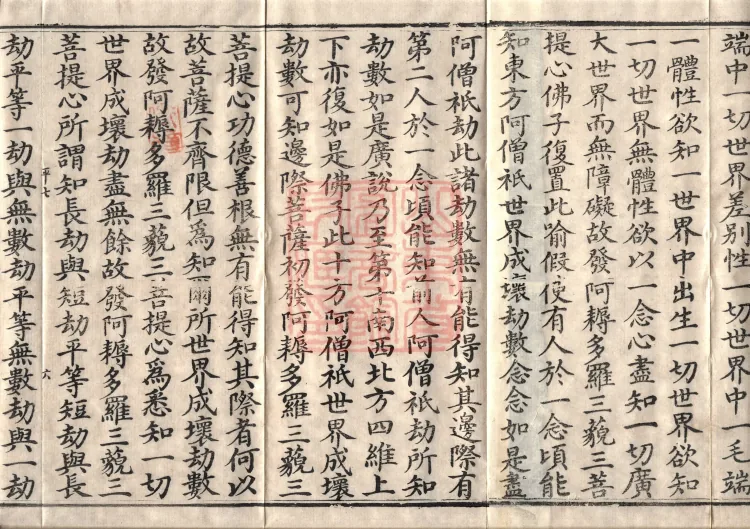 端中一切世界差別性一切世界中一毛端
一體性欲知一世界中出生一切世界欲知
一切世界無體性欲以一念心盡知一切廣
大世界而無障礙故發阿耨多羅三藐三菩
提心佛子復置此喻假使有人於一念頃能
知東方阿僧祇世界成壞劫數念念如是盡
阿僧祇劫此諸劫數無有能得知其邊際有
第二人於一念頃能知前人阿僧祇劫所知
劫數如是廣說乃至第十南西北方四維上
下亦復如是佛子此十方阿僧祇世界成壞
劫數可知邊際菩薩初發阿耨多羅三藐三
菩提心功德善根無有能得知其際者何以
故菩薩不齊限但為知爾所世界成壞劫數
故發阿耨多羅三藐三菩提心為悉知一切
世界成壞劫盡無餘故發阿耨多羅三藐三
菩提心所謂知長劫與短劫平等短劫與長
平七
六
劫平等一劫與無數劫平等無數劫與一劫